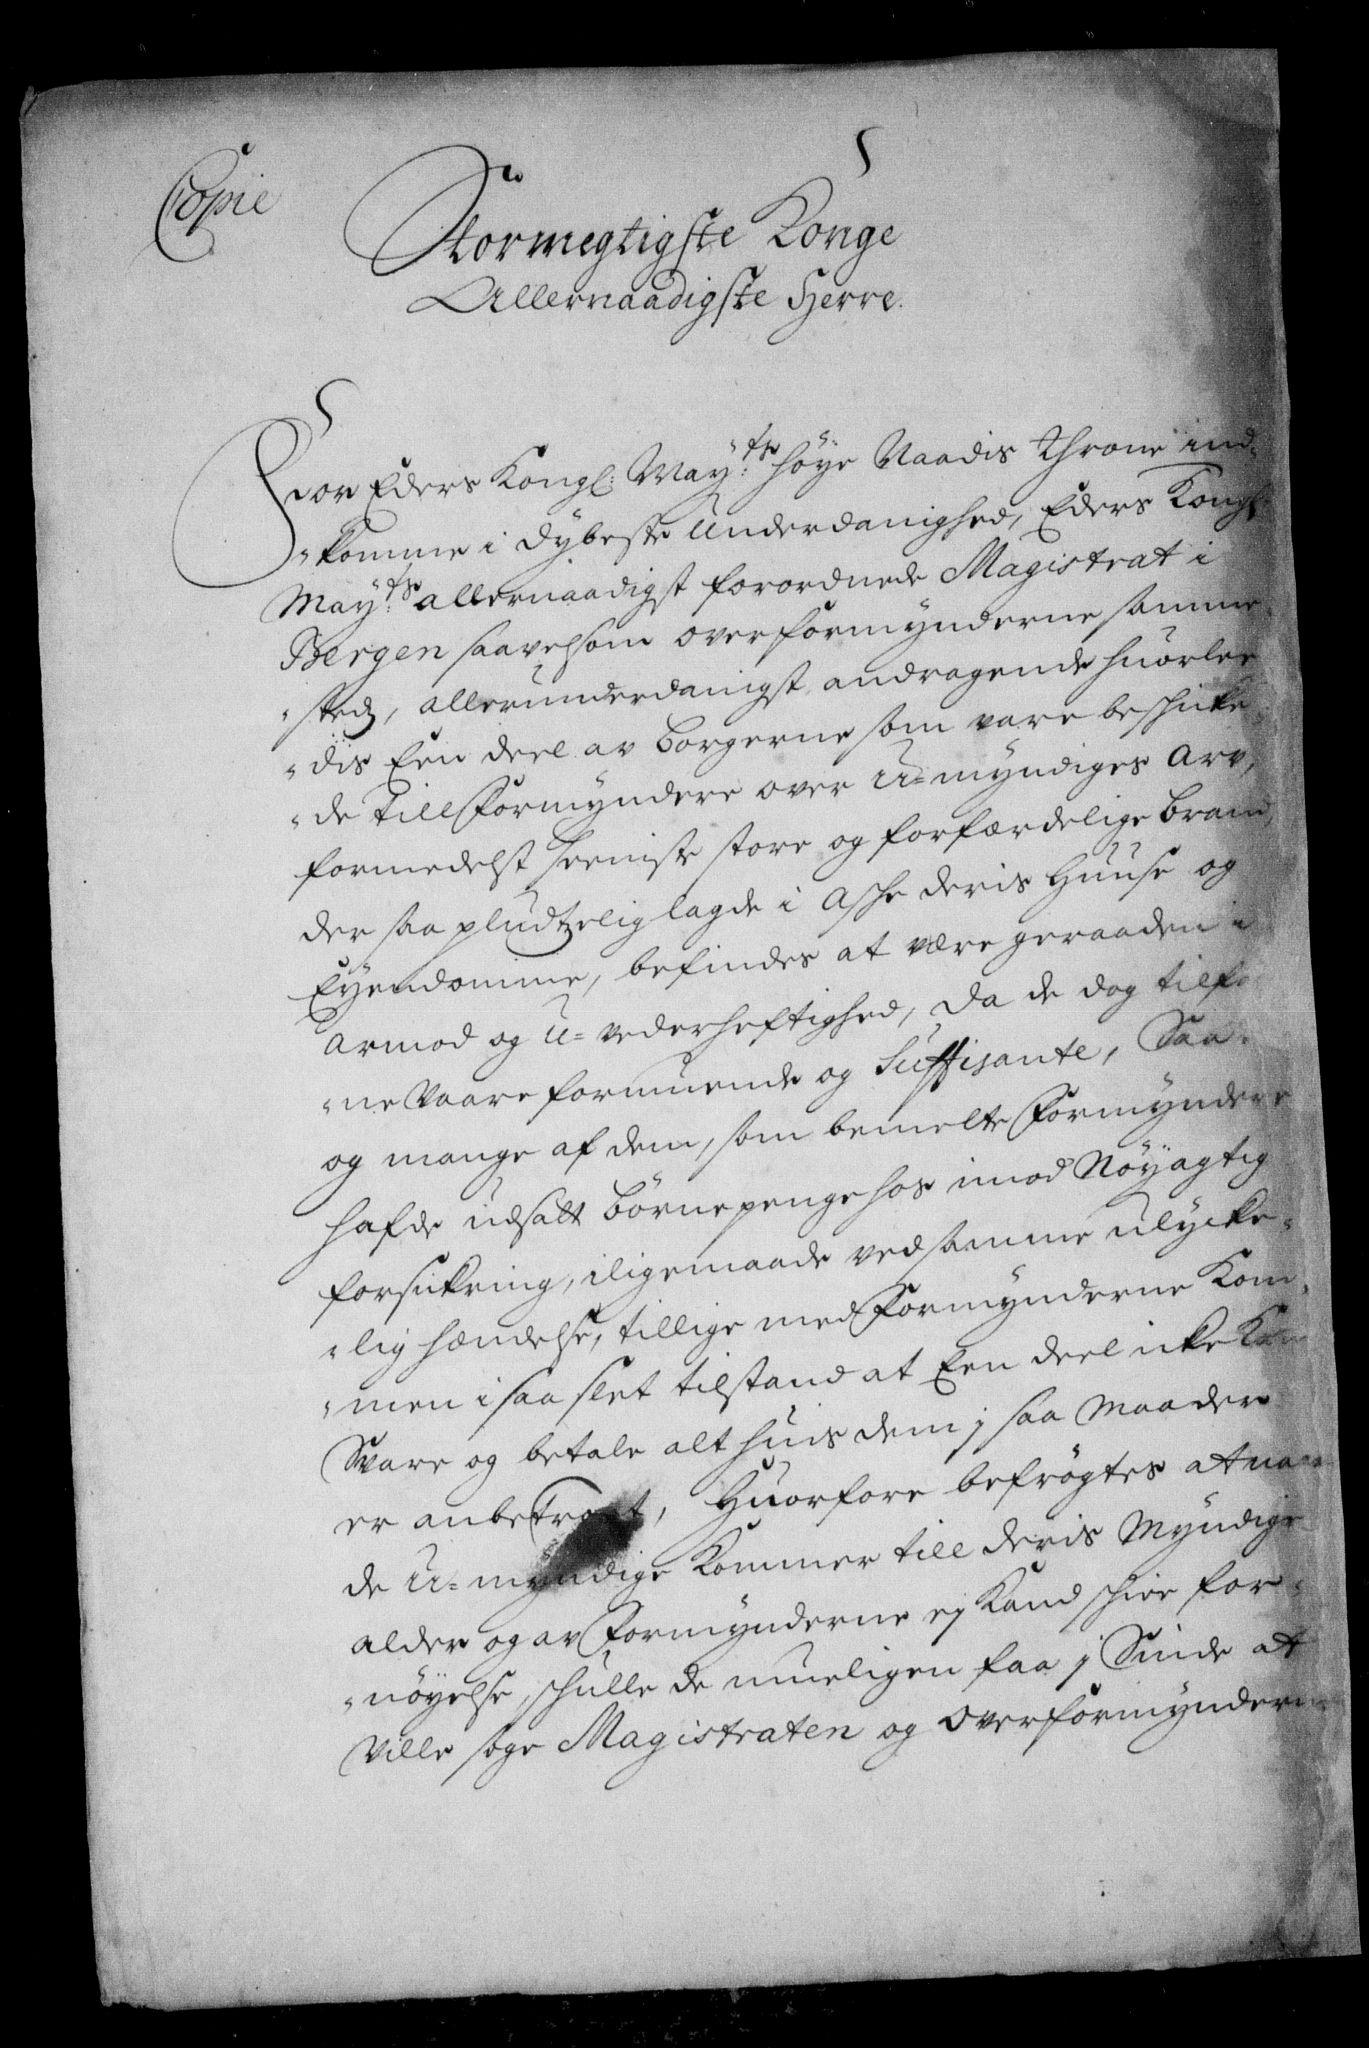 Copie
Stormegtigste Konge
Allernaadigste Herre.
For Eders Kongl: May:ts høye Naadis Throne ind-
"komme i dybeste Underdanighed, Eders Kongl:
May:ts allernaadigst forordnede Magistrat i
Bergen saavelsom overformynderne samme-
"sted, allerunderdanigst andragende huorlee-
"dis Een deel av borgerne som vare beschicke-
"de till Formyndere over U=myndiges Arv,
formedelst seeniste store og forfærdelige brand
der saa pludtzelig lagde i Asche deris Huuse og
Eyendomme, befindes at være geraaden i
Armod og U=vederheftighed, da de dog tilfo-
"ne vaare formuende og Suffisante, Saa-
og mange af dem, som bemelte Formyndere
hafde udsatt børnepenge hos imod Nøyagtig
forsickring, iligemaade ved samme ulycke-
"lig hændelse, tillige med Formynderne Kom-
"men i saa slet tilstand at Een deel icke Kan
Svare og betale alt huis dem j saa Maader
er anbetroet, Huorfore befrøgtes at naar
de U=myndige Kommer till deris Myndige
alder og av Formynderne ej Kand schee for-
"nøyelse, schulle de mueligen faa j Sinde at
ville søge Magistraten og Overformynderne